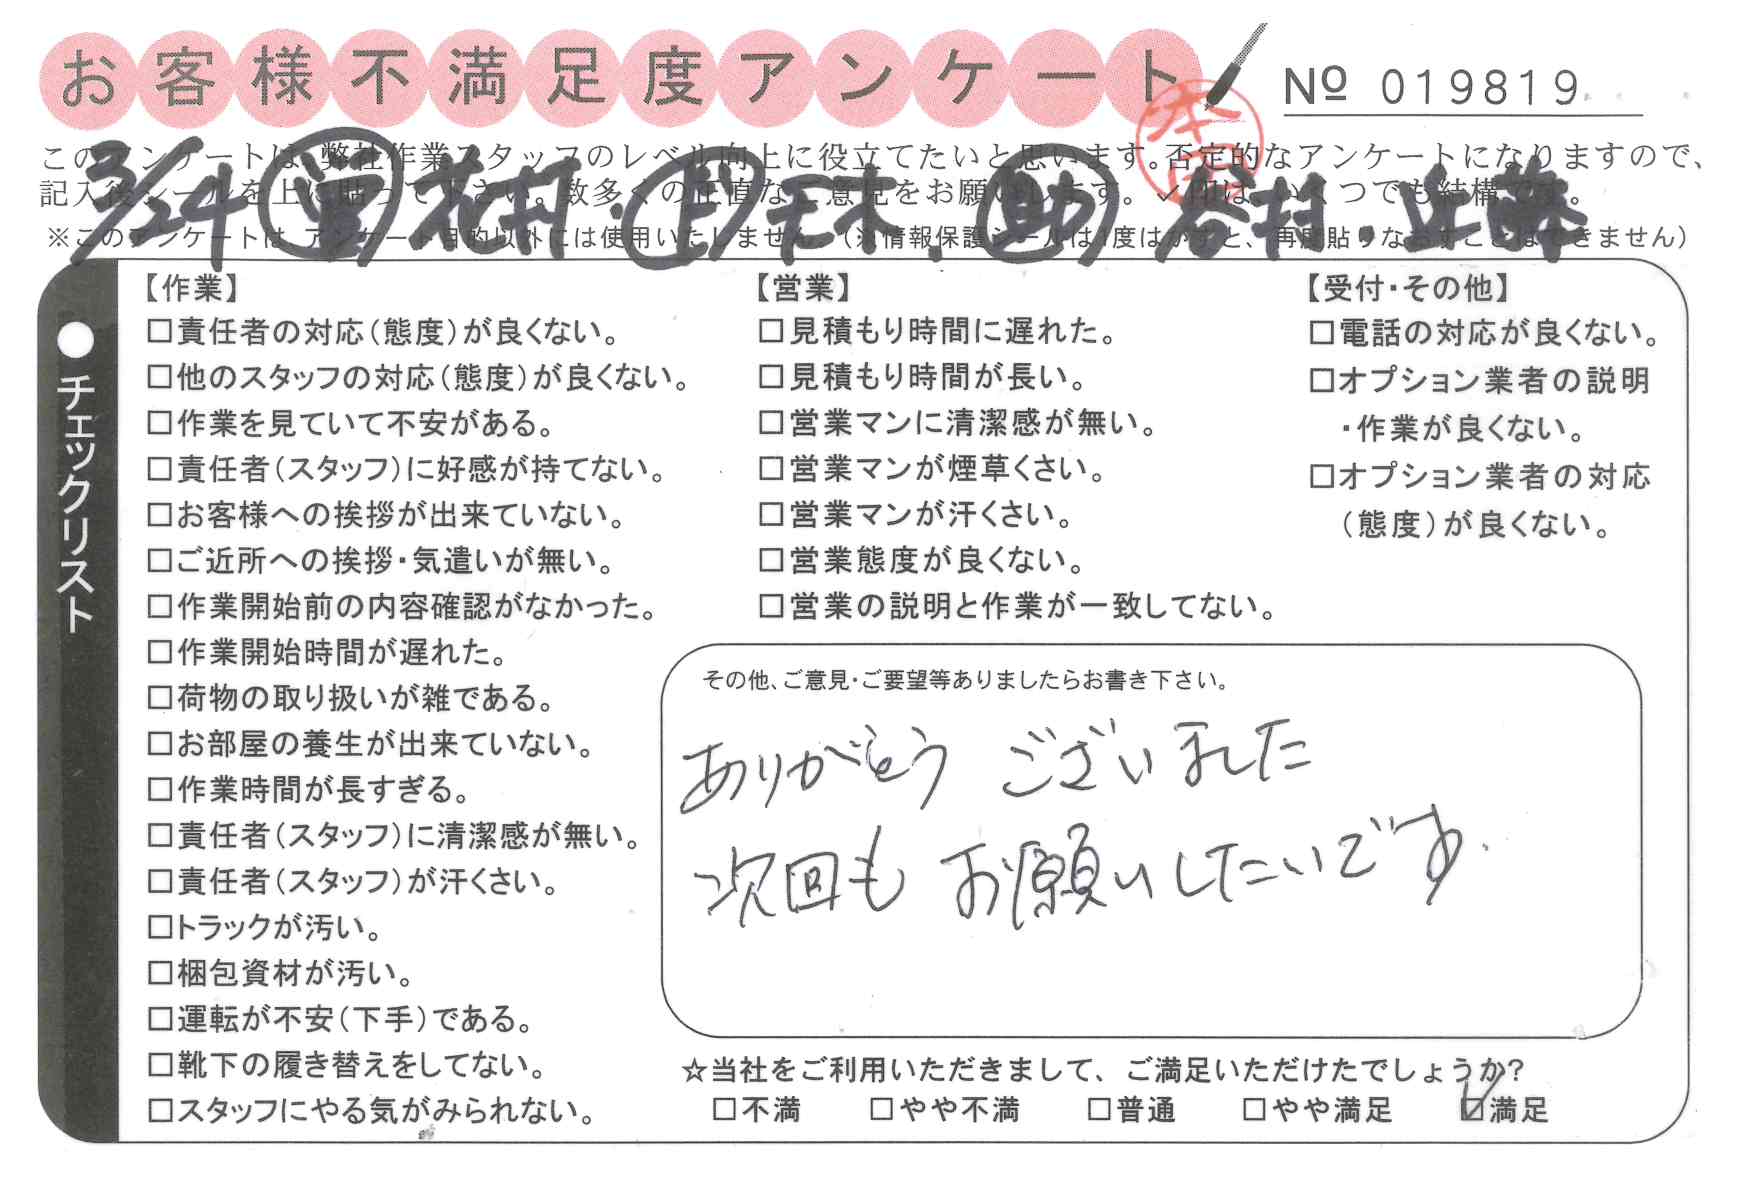 お客様不満足度アンケート
№ 019819
本田
このアンケートは、弊社作業スタッフのレベル向上に役立てたいと思います。否定的なアンケートになりますので、
記入後シールを上に貼って下さい。数多くの正直なご意見をお願いします。✓印は、いくつでも結構です。
※このアンケートは、アンケート目的以外には使用いたしません。(※情報保護シールは1度はがすと、再度貼りなおすことはできません)
3/24 営 花村・ 玉木. 助 谷村・
●チェックリスト
【作業】
□責任者の対応(態度)が良くない。
□他のスタッフの対応(態度)が良くない。
□作業を見ていて不安がある。
□責任者(スタッフ)に好感が持てない。
□お客様への挨拶が出来ていない。
□ご近所への挨拶・気遣いが無い。
□作業開始前の内容確認がなかった。
□作業開始時間が遅れた。
□荷物の取り扱いが雑である。
□お部屋の養生が出来ていない。
□作業時間が長すぎる。
□責任者(スタッフ)に清潔感が無い。
□責任者(スタッフ)が汗くさい。
□トラックが汚い。
□梱包資材が汚い。
□運転が不安(下手)である。
□靴下の履き替えをしてない。
□スタッフにやる気がみられない。
【営業】
□見積もり時間に遅れた。
□見積もり時間が長い。
□営業マンに清潔感が無い。
□営業マンが煙草くさい。
□営業マンが汗くさい。
□営業態度が良くない。
□営業の説明と作業が一致してない。
【受付・その他】
□電話の対応が良くない。
□オプション業者の説明
・作業が良くない。
□オプション業者の対応
(態度)が良くない。
その他、ご意見・ご要望等ありましたらお書き下さい。
ありがとう ございました
次回も お願いしたいです.
☆当社をご利用いただきまして、ご満足いただけたでしょうか?
□不満 □やや不満 □普通 □やや満足 ☑満足